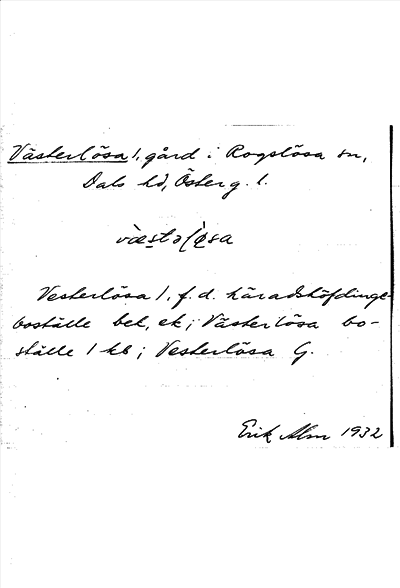 Västerlösa 1, gård i Rogslösa sn,
Dals hd, Österg. l.
Vesterlösa 1, f. d. häradshöfdinge-
boställe bek, ek; Västerlösa bo-
ställe 1 kb; Vesterlösa G.
Erik Alm 1932